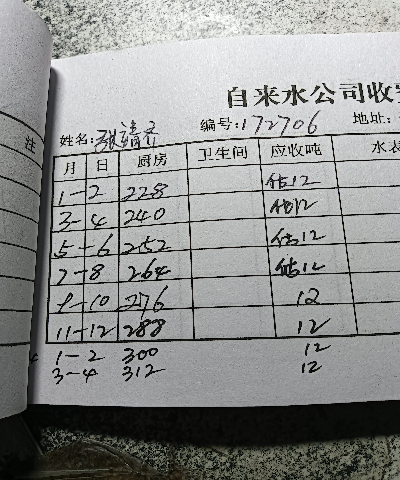 自来水公司收
姓名: 编号:172706 地址:
注
月 日 厨房 卫生间 应收吨 水表
1-2 228 估12
3-4 240 估12
5-6 252 估12
7-8 264 估12
9-10 276 12
11-12 288 12
1-2 300 12
3-4 312 12